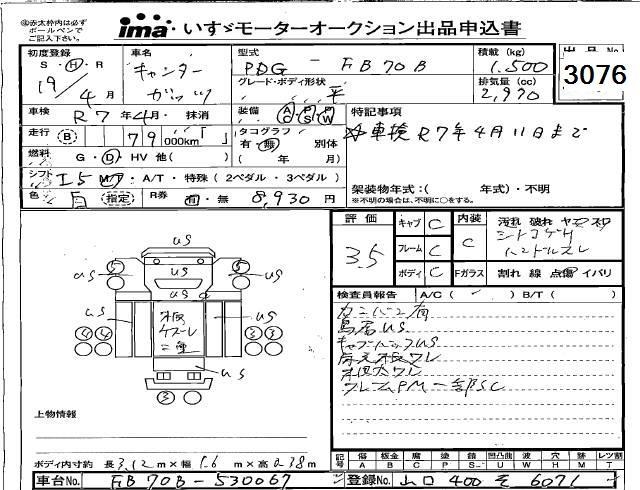 ※赤太枠内は必ず
ボールペンで
ご記入下さい。
ima いすゞモーターオークション出品申込書
初度登録 車名 型式 積載 (kg) 出品No
S・H・R キャンター PDG - FB70B 1,500 3076
19/4月 ガッツ グレード・ボディ形状 平 排気量 (cc) 2,970
車検 R7年4月 抹消 装備 AC PS PW 特記事項
走行 79 000km 「 」 タコグラフ 有・無 別体 ( 年 月) ※車検R7年4月11日まで
燃料 G・D・HV 他( )
シフト I5 MT・A/T・特殊 (2ペダル・3ペダル) 架装物年式:( 年式)・不明
色 白 (指定) R券 有・無 8,930円 ※不明の場合は、不明に○をする。
評価 3.5 キャブ C 内装 C 汚れ 破れ
フレーム C
ボディ C Fガラス 割れ 線 点傷 イバリ
検査員報告 A/C ( ) B/T ( )
カニバン有
鳥居US
US
US US
US
US US
板
二重
④④ ③③
US
③
キャブバックUS
フレームPM一部SC
上物情報
ボディ内寸約 長3.12m×幅1.6m×高0.38m
記号 傷 板金 腐 塗 錆 凹凸曲 穴 跡 レンズ割
A B C P S U W H M Y
車台No. FB70B-530067 登録No. 山口 400 そ 6071